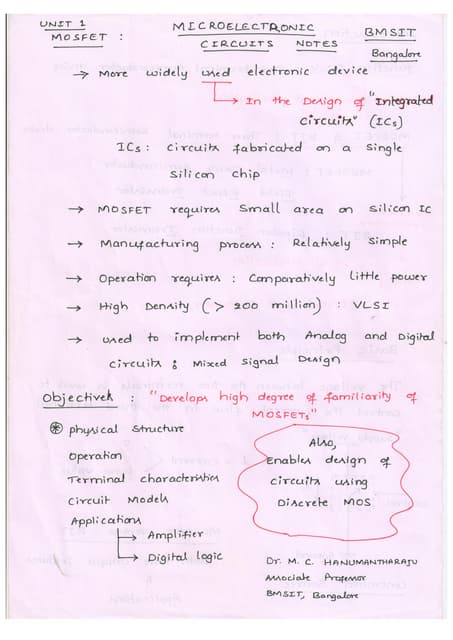 UNIT 1 MICROELECTRONIC BMSIT
MOSFET : CIRCUITS NOTES Bangalore
→ More widely used electronic device
→ In the Design of "Integrated
Circuits" (ICs)
ICs : Circuits fabricated on a single
Silicon chip
→ MOSFET requires Small area on silicon IC
→ Manufacturing process : Relatively Simple
→ Operation requires : Comparatively little power
→ High Density ( > 200 million) : VLSI
→ used to implement both Analog and Digital
circuits : Mixed Signal Design
Objectives : "Develops high degree of familiarity of
MOSFETs"
* physical structure
Operation
Terminal characteristics
Circuit Models
Applications
→ Amplifier
→ Digital logic
Also,
Enables design of
circuits using
Discrete MOS
Dr. M. C. HANUMANTHARAJU
Associate Professor
BMSIT, Bangalore